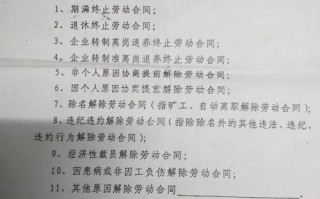 1、期满终止劳动合同;
2、退休终止劳动合同;
3、企业转制离岗退养终止劳动合同;
4、企业转制准离岗退养终止劳动合同;
5、非个人原因协商提前解除劳动合同;
6、因个人原因协商提前解除劳动合同;
7、除名解除劳动合同(指矿工、自动离职解除劳动合同);
8、违纪违约解除劳动公同(指除除名外的其他违法、违纪、
违约行为解除劳动合同);
9、经济性裁员解除劳动合同;
10、因患病或非因工负伤解除劳动合同;
11、其他原因解除劳动合同